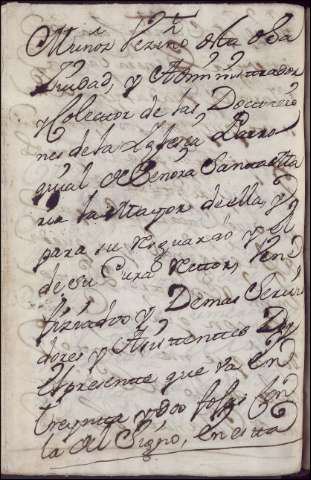 Muñoz Vezino desta dha
Ciudad, y Administrador
y Colector de las Dotacio
nes de la Yglesia Parro
quial de Señora Santa Ma
ria la Mayor de ella, y
para su resguardo y el
de su Cura Rector, Vene
ficiados y Demas Servi
dores y Asistentes Doy
el presente que va en
treynta y dos fojas con
la del Signo, en esta